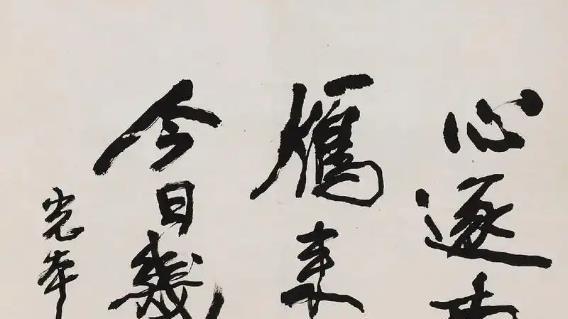 心逐南
鴈来
今日幾
光年